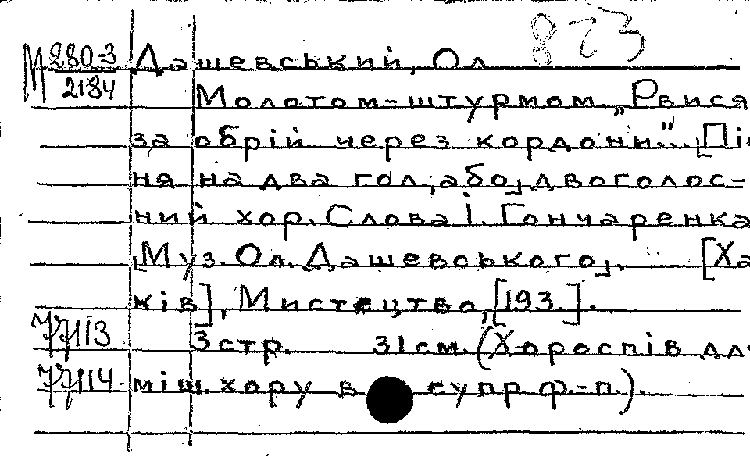 823
М 280-3 Дашевський, Ол
2184
Молотом-штурмом „Рвися
за обрій через кордони"... [Піс
ня на два гол, або, двоголос-
ний хор. Слова І. Гончаренка
[Муз. Ол. Дашевського]. [Ха
ків], Мистецтво, [193.].
77113 3 стр. 31 см. (Хороспів для
77114 міш. хору в супр. ф.-п.).